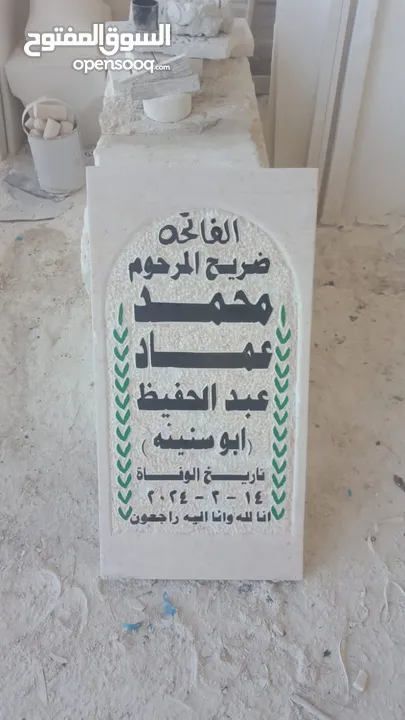 السوق المفتوح
opensooq.com
الفاتحه
ضريح المرحوم
محمد
عماد
عبد الحفيظ
(ابو سنينه)
تاريخ الوفاة
١٤ - ٢ - ٢٠٢٤
انا لله وانا اليه راجعون